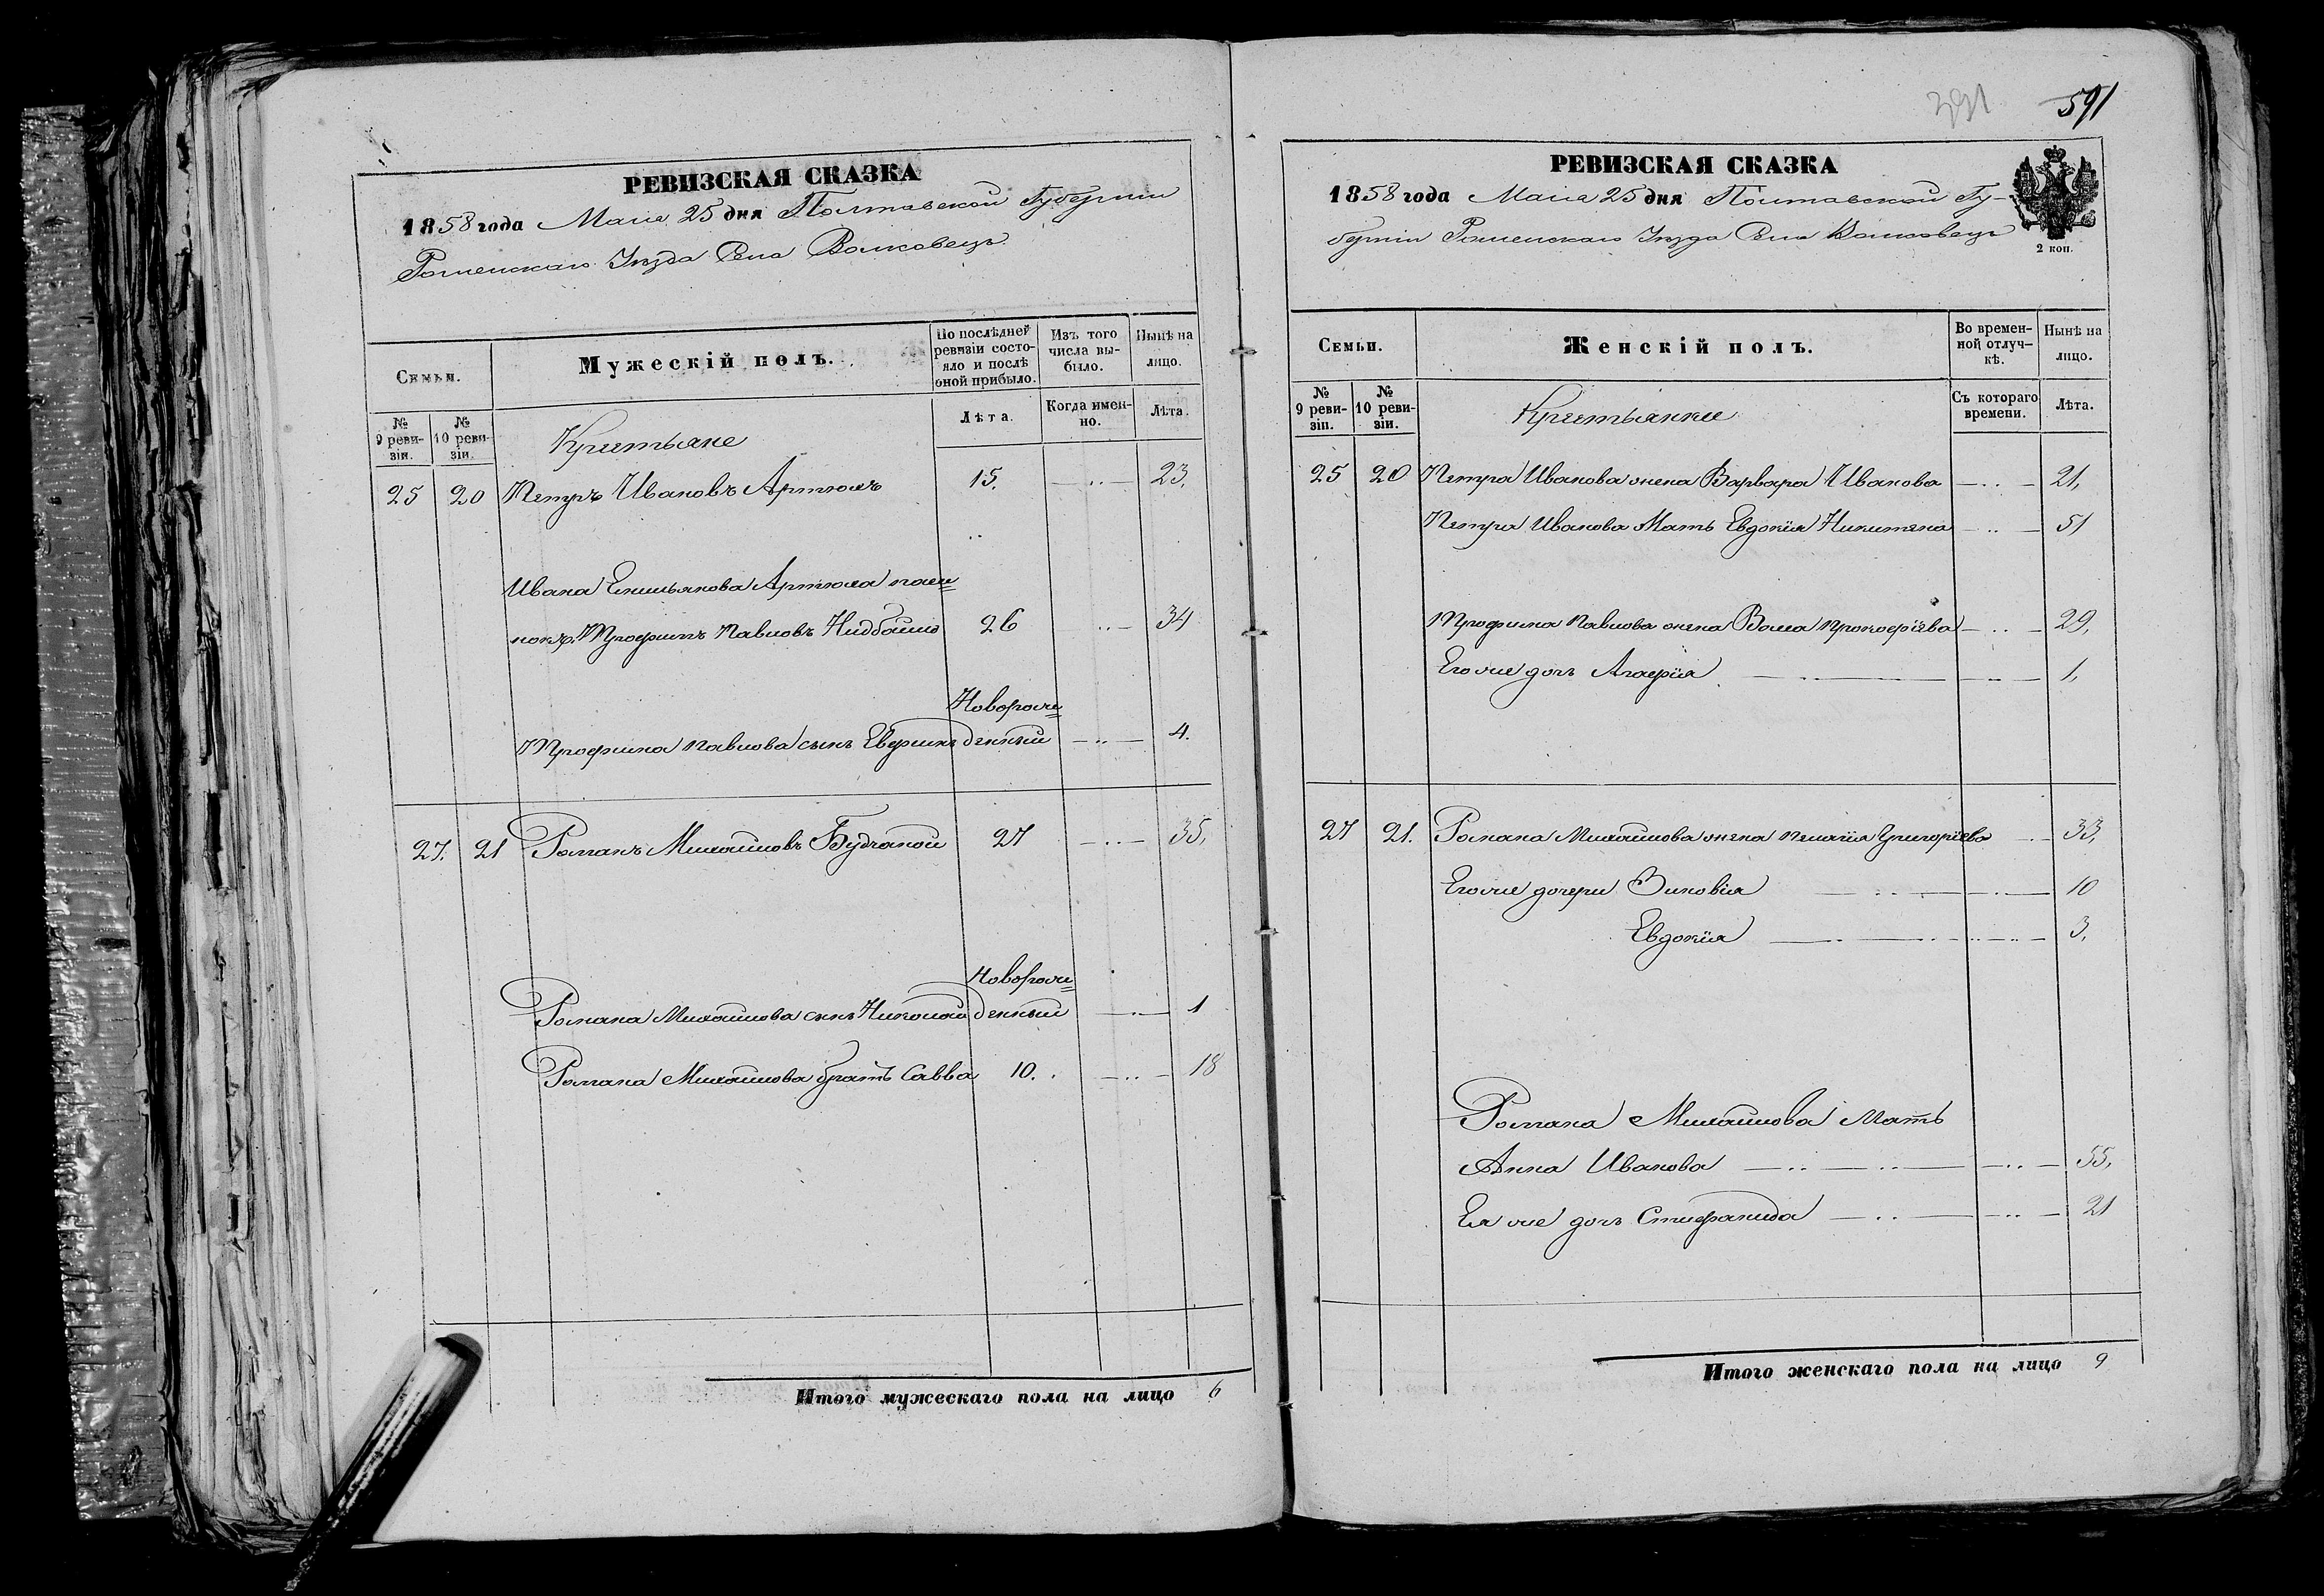 РЕВИЗСКАЯ СКАЗКА
1858 года Маія 25 дня Полтавской Губерніи
Роменскаго Уѣзда Села Волковецъ
Семьи.
Мужескій полъ.
По послѣдней ревизіи состояло и послѣ оной прибыло.
Изъ того числа выбыло.
Нынѣ на лицо.
№ 9 ревизіи.
№ 10 ревизіи.
Крестьяне
Лѣта.
Когда именно.
Лѣта.
25 20 Петръ Ивановъ Артюхъ 15. 23.
Ивана Емильянова Артюха
Трофимъ Павловъ 26 34
Новорож=
Трофима Павлова сынъ денный 4.
27. 21 Романъ Михайловъ 27 35,
Новорож=
Романа Михайлова сынъ Николай денный 1
Романа Михайлова братъ Савва 10. 18
Итого мужескаго пола на лицо 6
591
РЕВИЗСКАЯ СКАЗКА
1858 года Маія 25 дня Полтавской Гу-
берніи Роменскаго Уѣзда Села Волковецъ
2 коп.
Семьи.
Женскій полъ.
Во временной отлучкѣ.
Нынѣ на лицо.
№ 9 ревизіи.
№ 10 ревизіи.
Крестьянки
Съ котораго времени.
Лѣта.
25 20 Петра Иванова жена Варвара Иванова 21,
Петра Иванова Мать Евдокія Никитина 51
Трофима Павлова жена Прокофіева 29,
Его же дочь Агафія 1,
27 21. Романа Михайлова жена Пелагія Григоріева 33,
Его же дочери Зиновія 10
Евдокія 3,
Романа Михайлова Мать
Анна Иванова 55,
Ея же дочь Стефанида 21
Итого женскаго пола на лицо 9